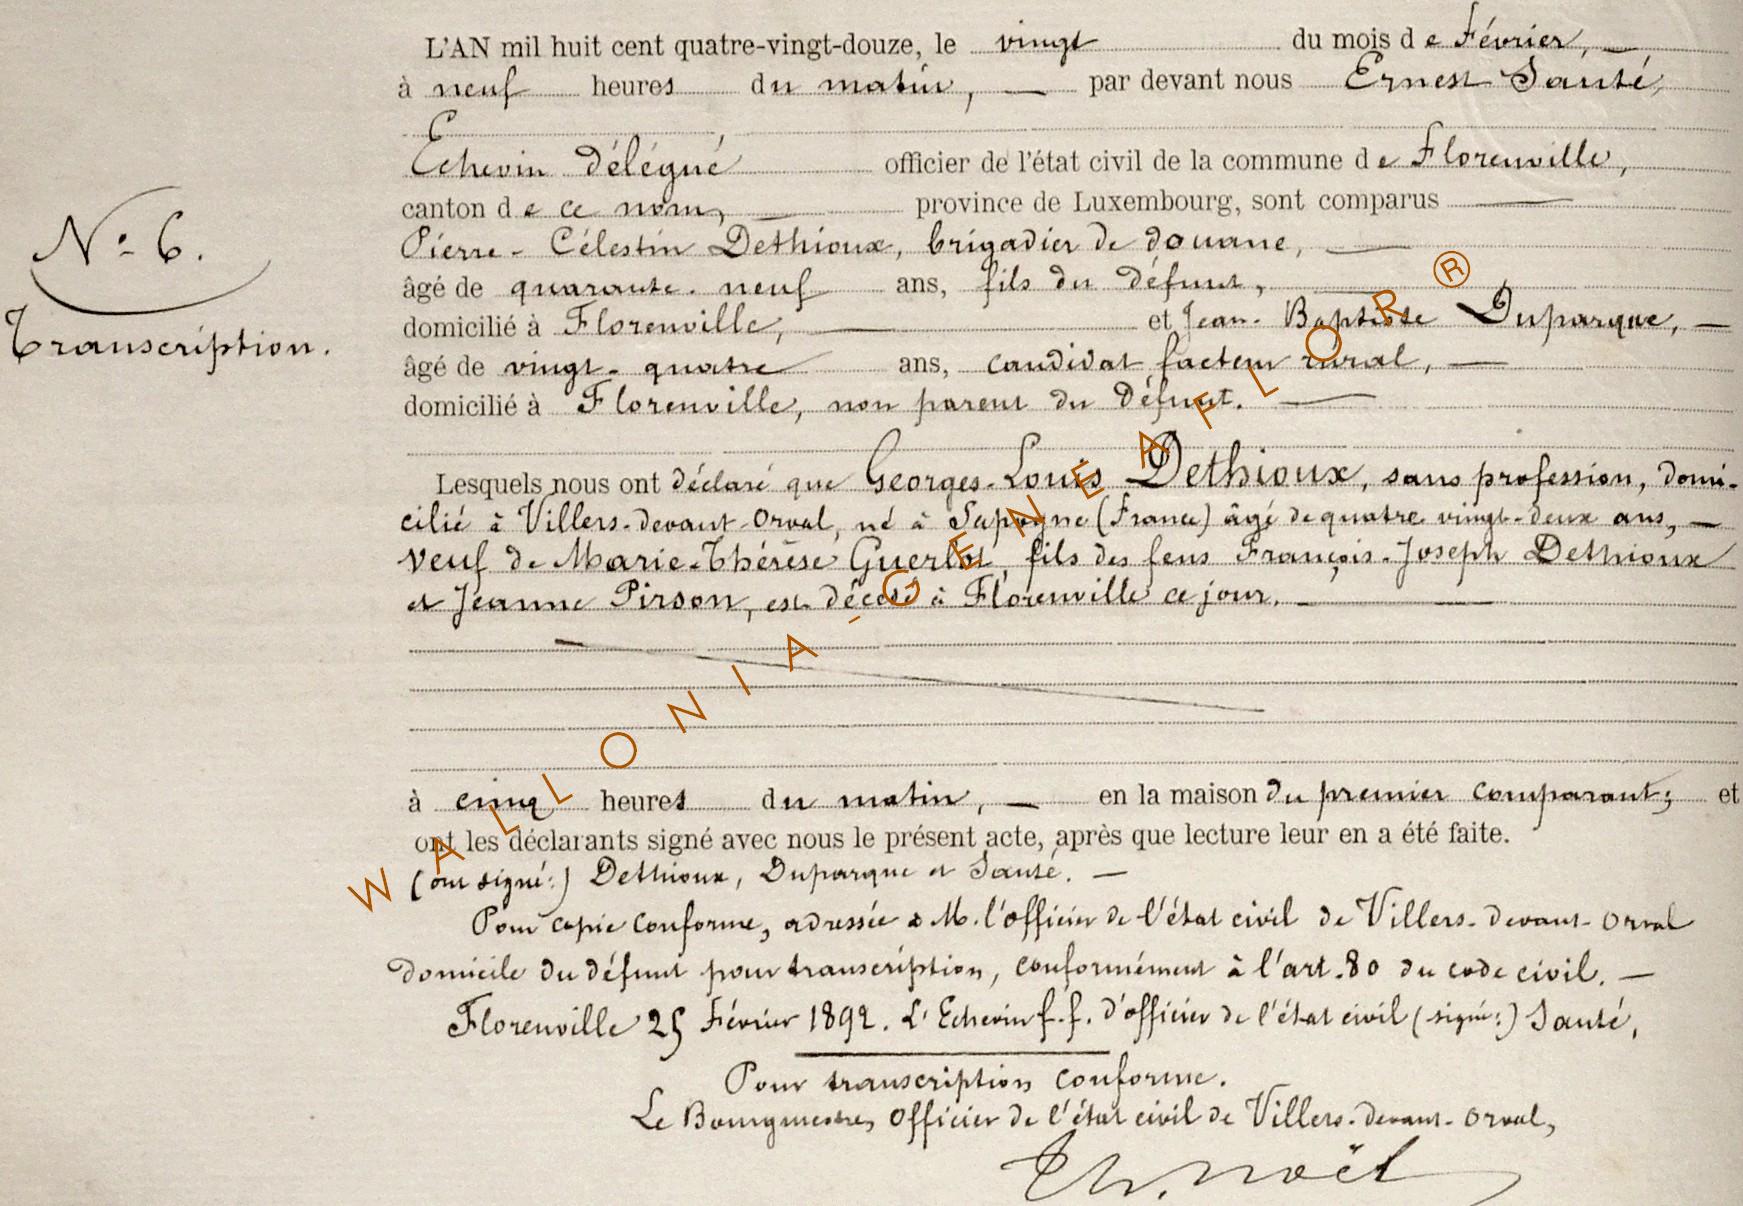 L'AN mil huit cent quatre-vingt-douze, le vingt du mois de Février,
à neuf heures du matin, par devant nous Ernest Santé,
Echevin délégué officier de l'état civil de la commune de Florenville,
canton de ce nom, province de Luxembourg, sont comparus
Nº 6.
Transcription.
Pierre-Célestin Dethioux, brigadier de douane,
âgé de quarante-neuf ans, fils du défunt,
domicilié à Florenville, et Jean-Baptiste Duparque,
âgé de vingt-quatre ans, candidat facteur rural,
domicilié à Florenville, non parent du défunt.
Lesquels nous ont déclaré que Georges-Louis Dethioux, sans profession, domi-
cilié à Villers-devant-Orval, né à Sapogne (France) âgé de quatre vingt-deux ans,
veuf de Marie-Thérèse Guerlot, fils des feus François-Joseph Dethioux
et Jeanne Pirson, est décédé à Florenville ce jour,
à cinq heures du matin, en la maison du premier comparant; et
ont les déclarants signé avec nous le présent acte, après que lecture leur en a été faite.
(ont signé:) Dethioux, Duparque et Santé.
Pour copie conforme, adressée à M. l'officier de l'état civil de Villers-devant-Orval
domicile du défunt pour transcription, conformément à l'art. 80 du code civil.
Florenville 25 Février 1892. L'Echevin f.f. d'officier de l'état civil (signé:) Santé,
Pour transcription conforme.
Le Bourgmestre, Officier de l'état civil de Villers-devant-Orval,
Th. Noël
WALLONIA-GENEAFLOR®